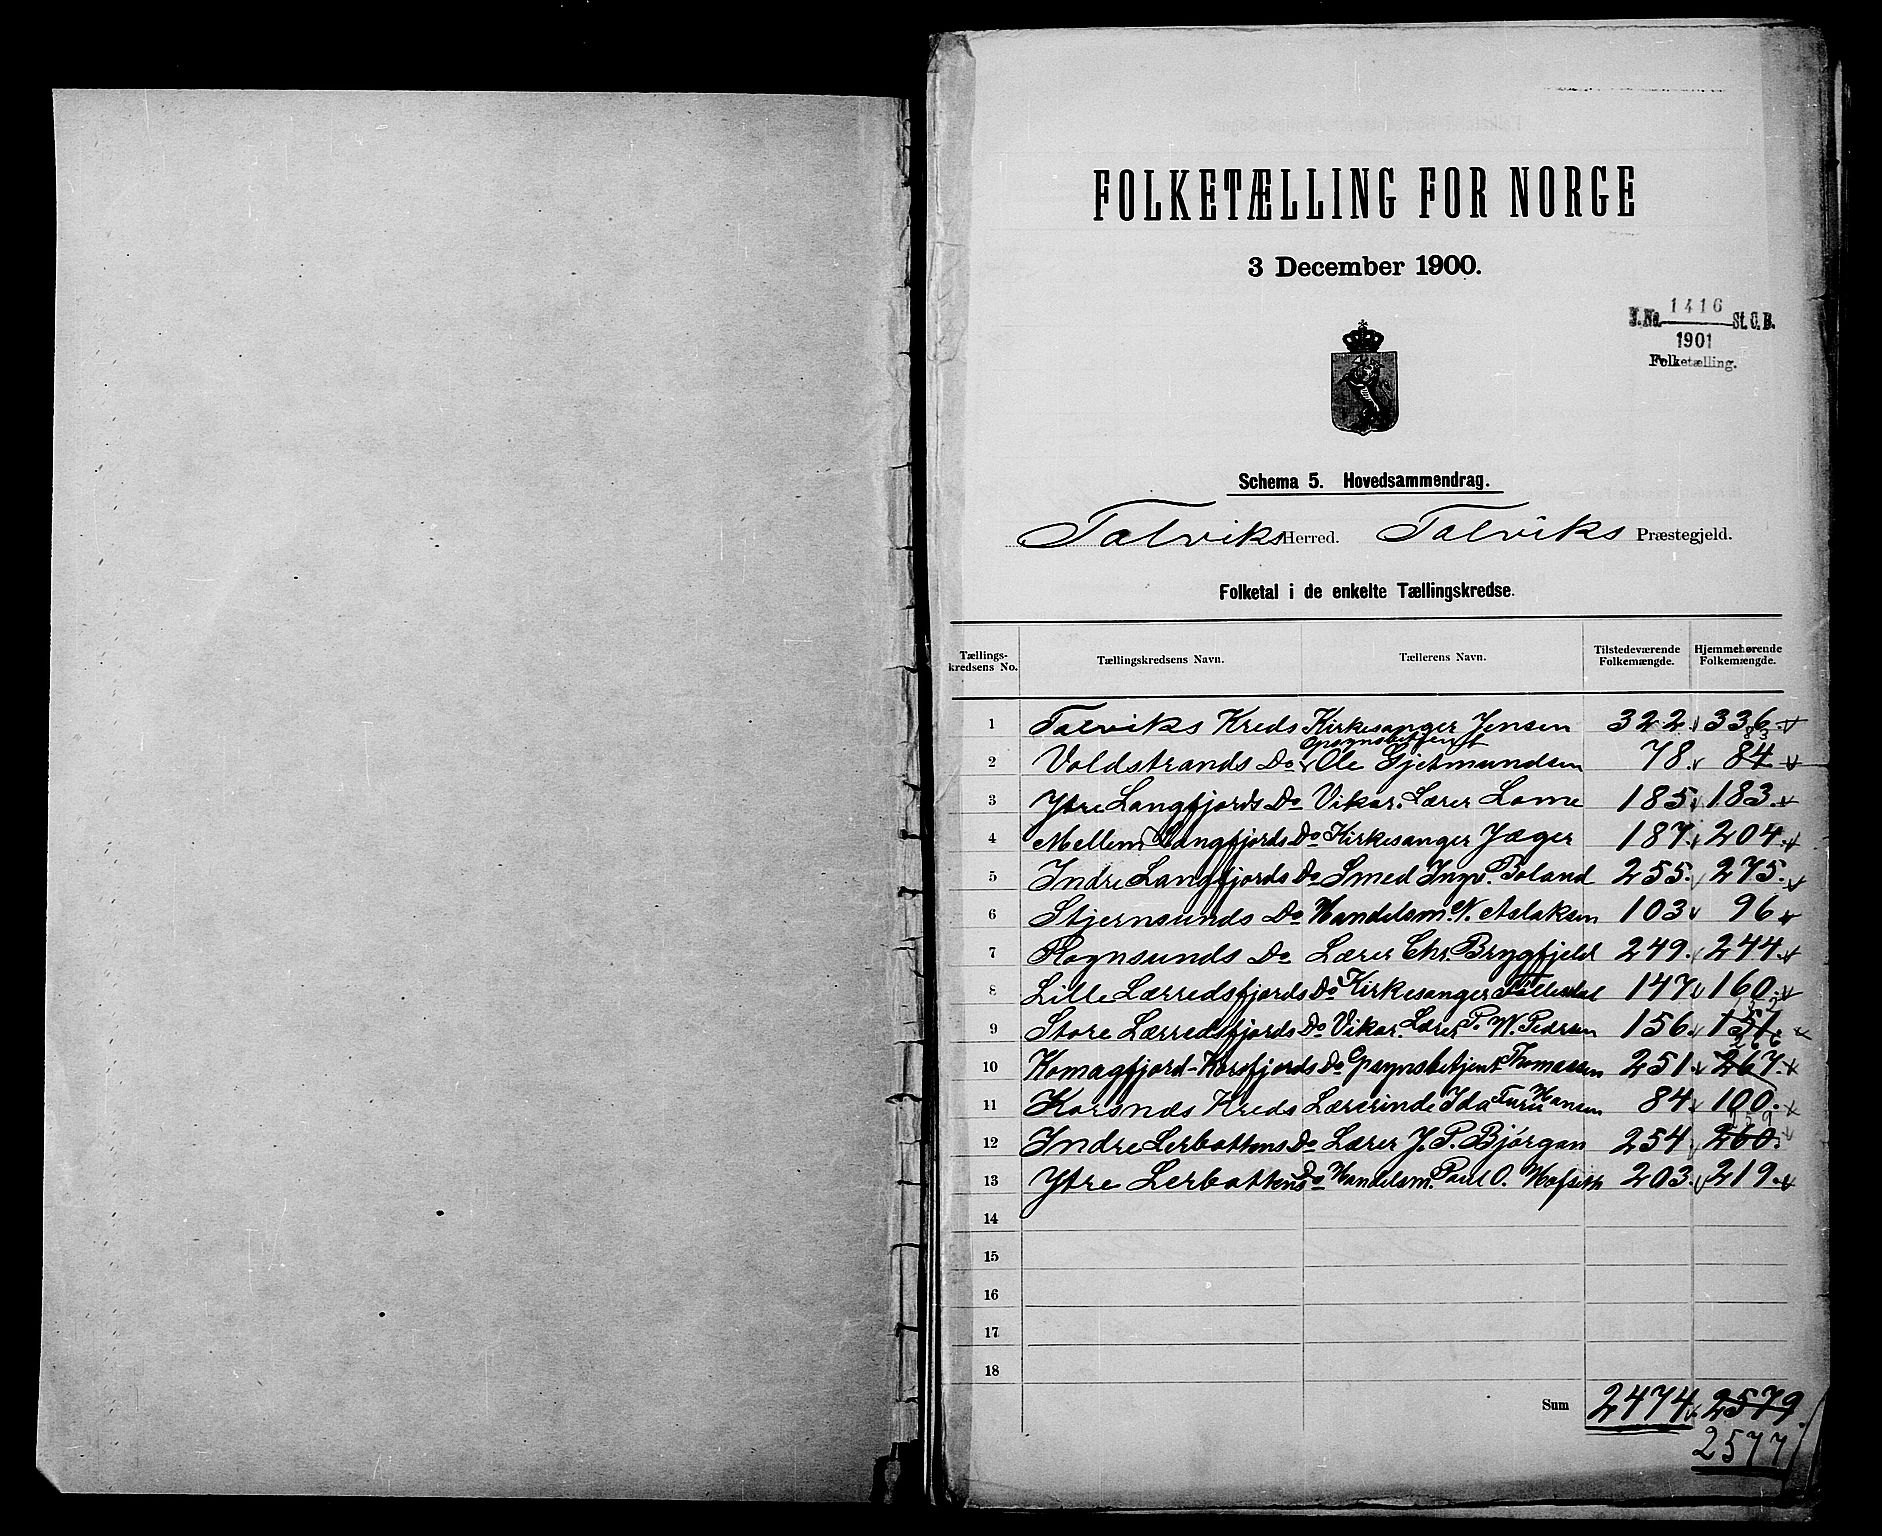 FOLKETÆLLING FOR NORGE
3 December 1900.
J.No. 1416 St. C. B.
1901
Folketælling.
Schema 5. Hovedsammendrag.
Talviks Herred. Talviks Præstegjeld.
Folketal i de enkelte Tællingskredse.
Tællings-kredsens No. Tællingskredsens Navn. Tællerens Navn. Tilstedeværende Folkemængde. Hjemmehørende Folkemængde.
1 Talviks Kreds Kirkesanger Jensen 322 336
Opsynsbetjent 83
2 Voldstrands Do Ole Gjetmundsen 78 84
3 Ytre Langfjords Do Vikar. Lærer Lome 185 183
4 Mellem Langfjords Do Kirkesanger Jæger 187 204
5 Indre Langfjords Do Smed Ingv. Toland 255 275
6 Stjernsunds Do Handelsm. N. Aslaksen 103 96
7 Rognsunds Do Lærer Chr. Brygfjeld 249 244
8 Lille Lærredsfjords Do Kirkesanger 147 160
152
9 Store Lærredsfjords Do Vikar. Lærer P. W. Pedersen 156 151
266
10 Komagfjord-Korsfjords Do Opsynsbetjent Thomassen 251 267
11 Korsnæs Kreds Lærerinde Ida Hansen 84 100
259
12 Indre Lerbottens Do Lærer J. P. Bjørgan 254 260
13 Ytre Lerbottens Do Handelsm. Paul O. 203 219
14
15
16
17
18
Sum 2474 2579
2577